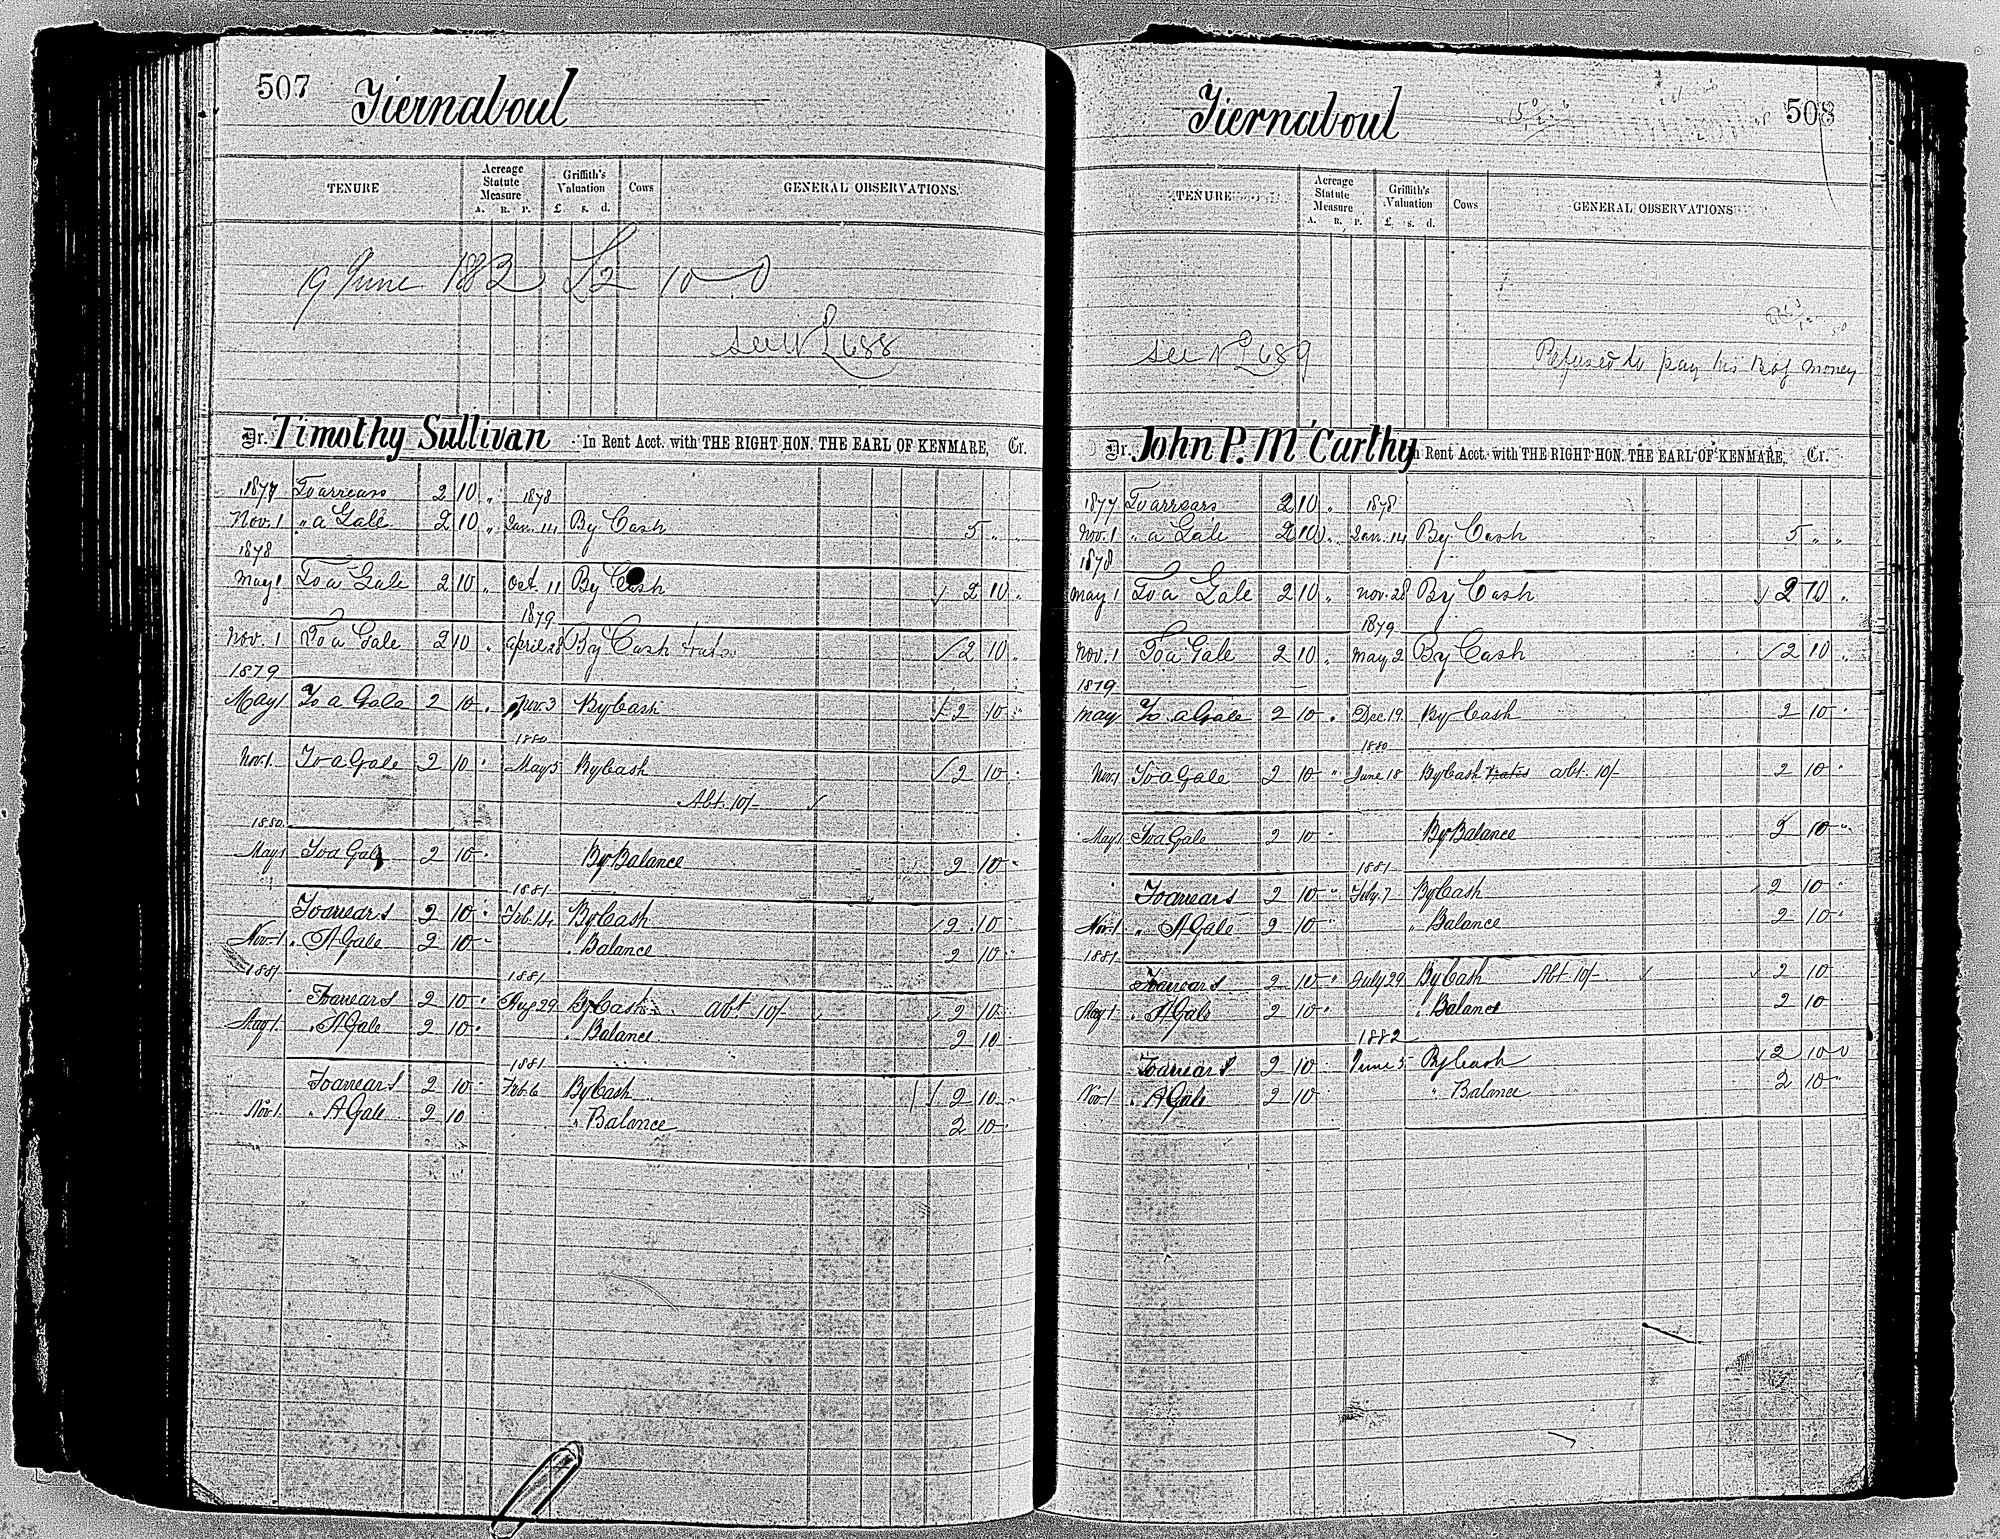 507 Tiernaboul
TENURE Acreage Statute Measure A. R. P. Griffith's Valuation £ s. d. Cows GENERAL OBSERVATIONS.
19 June 1882 £2 10-0
see N L 688
Dr. Timothy Sullivan In Rent Acct. with THE RIGHT HON. THE EARL OF KENMARE, Cr.
1877 To arrears 2 10 " 1878
Nov. 1 " a Gale 2 10 " Jan. 14 By Cash 5 " "
1878
May 1 To a Gale 2 10 " Oct. 11 By Cash 2 10 "
1879
Nov. 1 To a Gale 2 10 " April 28 By Cash 2 10 "
1879
May 1 To a Gale 2 10 " Nov. 3 By Cash 2 10 "
1880
Nov. 1 To a Gale 2 10 " May 5 By Cash 2 10 "
Abt. 10/-
1880
May 1 To a Gale 2 10 " By Balance 2 10 "
1881
To arrears 2 10 " Feb. 14 By Cash 2 10
Nov. 1 " A Gale 2 10 " " Balance 2 10 "
1881 1881
To arrears 2 10 " Aug 29 By Cash abt 10/- 2 10 "
May 1 " A Gale 2 10 " " Balance 2 10 "
1881
To arrears 2 10 " Feb. 6 By Cash 2 10 "
Nov. 1 " A Gale 2 10 " Balance 2 10 "
Tiernaboul 508
TENURE Acreage Statute Measure A. R. P. Griffith's Valuation £ s. d. Cows GENERAL OBSERVATIONS
see N L 689 Refused to pay his Bog money
Dr. John P. McCarthy In Rent Acct. with THE RIGHT HON. THE EARL OF KENMARE, Cr.
1877 To arrears 2 10 " 1878
Nov. 1 " a Gale 2 10 " Jan. 14 By Cash 5 " "
1878
May 1 To a Gale 2 10 " Nov. 28 By Cash 2 10 "
1879
Nov. 1 To a Gale 2 10 " May 2 By Cash 2 10 "
1879
May To a Gale 2 10 " Dec. 19 By Cash 2 10 "
1880
Nov. 1 To a Gale 2 10 " June 18 By Cash abt. 10/- 2 10 "
May 1 To a Gale 2 10 " By Balance 10 "
1881
To arrears 2 10 " Feby. 7 By Cash 2 10 "
Nov. 1 " A Gale 2 10 " " Balance 2 10 "
1881
To arrears 2 10 " July 29 By Cash Abt 10/- 2 10
May 1 " A Gale 2 10 " " Balance 2 10
1882
To arrears 2 10 June 5 By Cash 2 10 0
Nov. 1 " A Gale 2 10 " " Balance 2 10 "